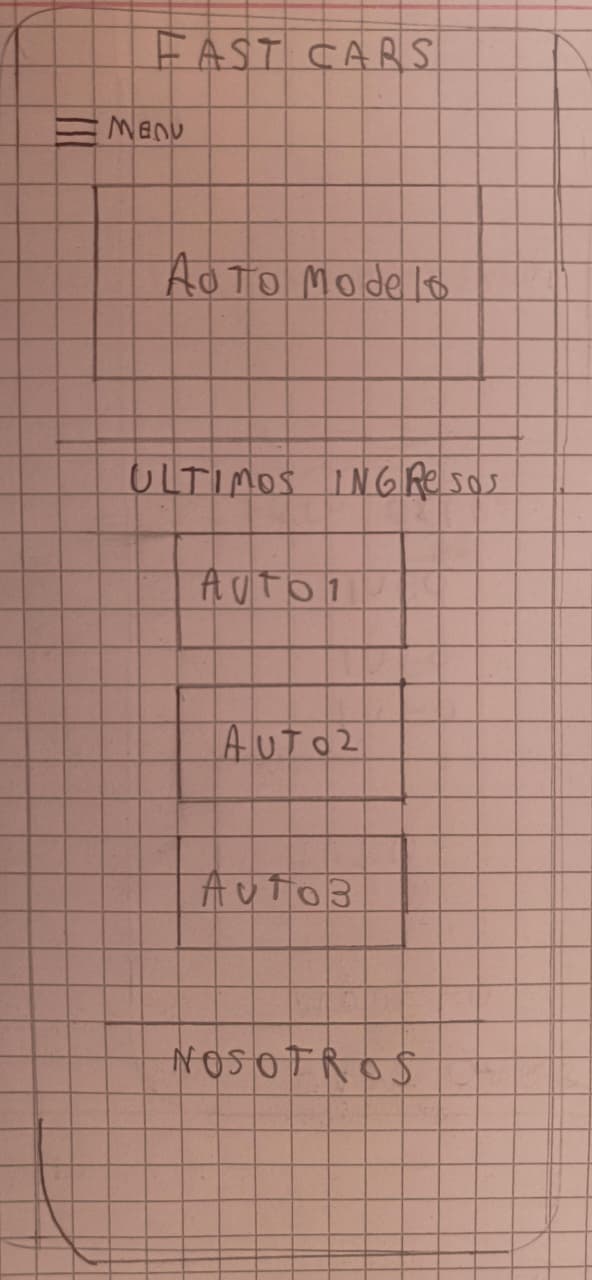 FAST CARS
Menu
AUTO Modelo
ULTIMOS INGResos
AUTO1
AUTO2
AUTO3
NOSOTROS